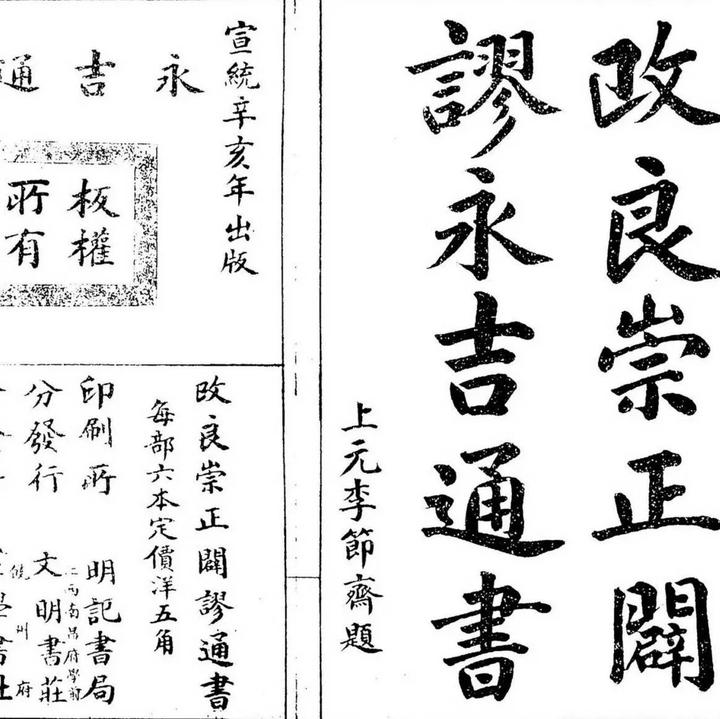 改良崇正闢
謬永吉通書
上元李節齋題
宣統辛亥年出版
永吉通
板權
所有
改良崇正闢謬通書
每部六本定價洋五角
印刷所 明記書局
江西南昌府學前
分發行 文明書莊
饒州府